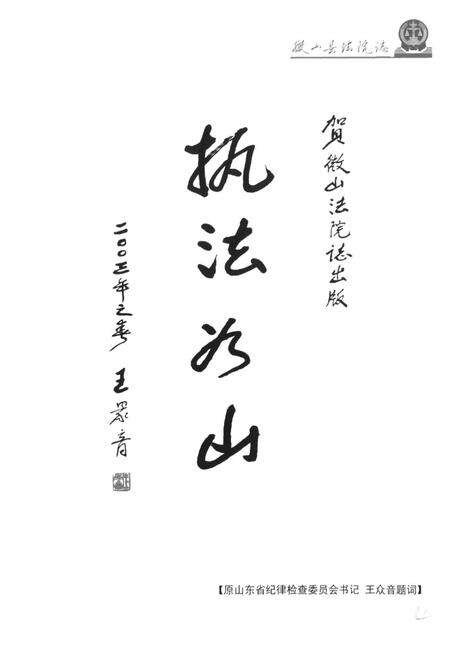 微山县法院志
賀微山法院誌出版
执法如山
二〇〇三年之春 王眾音
【原山东省纪律检查委员会书记 王众音题词】